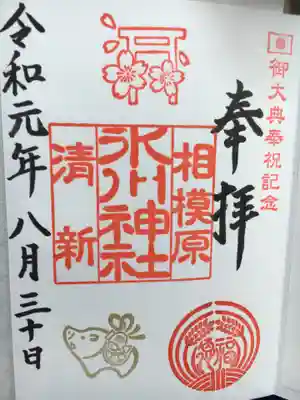 御大典奉祝記念
奉拝
相模原
氷川神社
清新
令和元年八月三十日